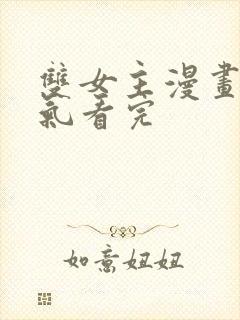 雙女主漫畫
氣看完
如意妞妞